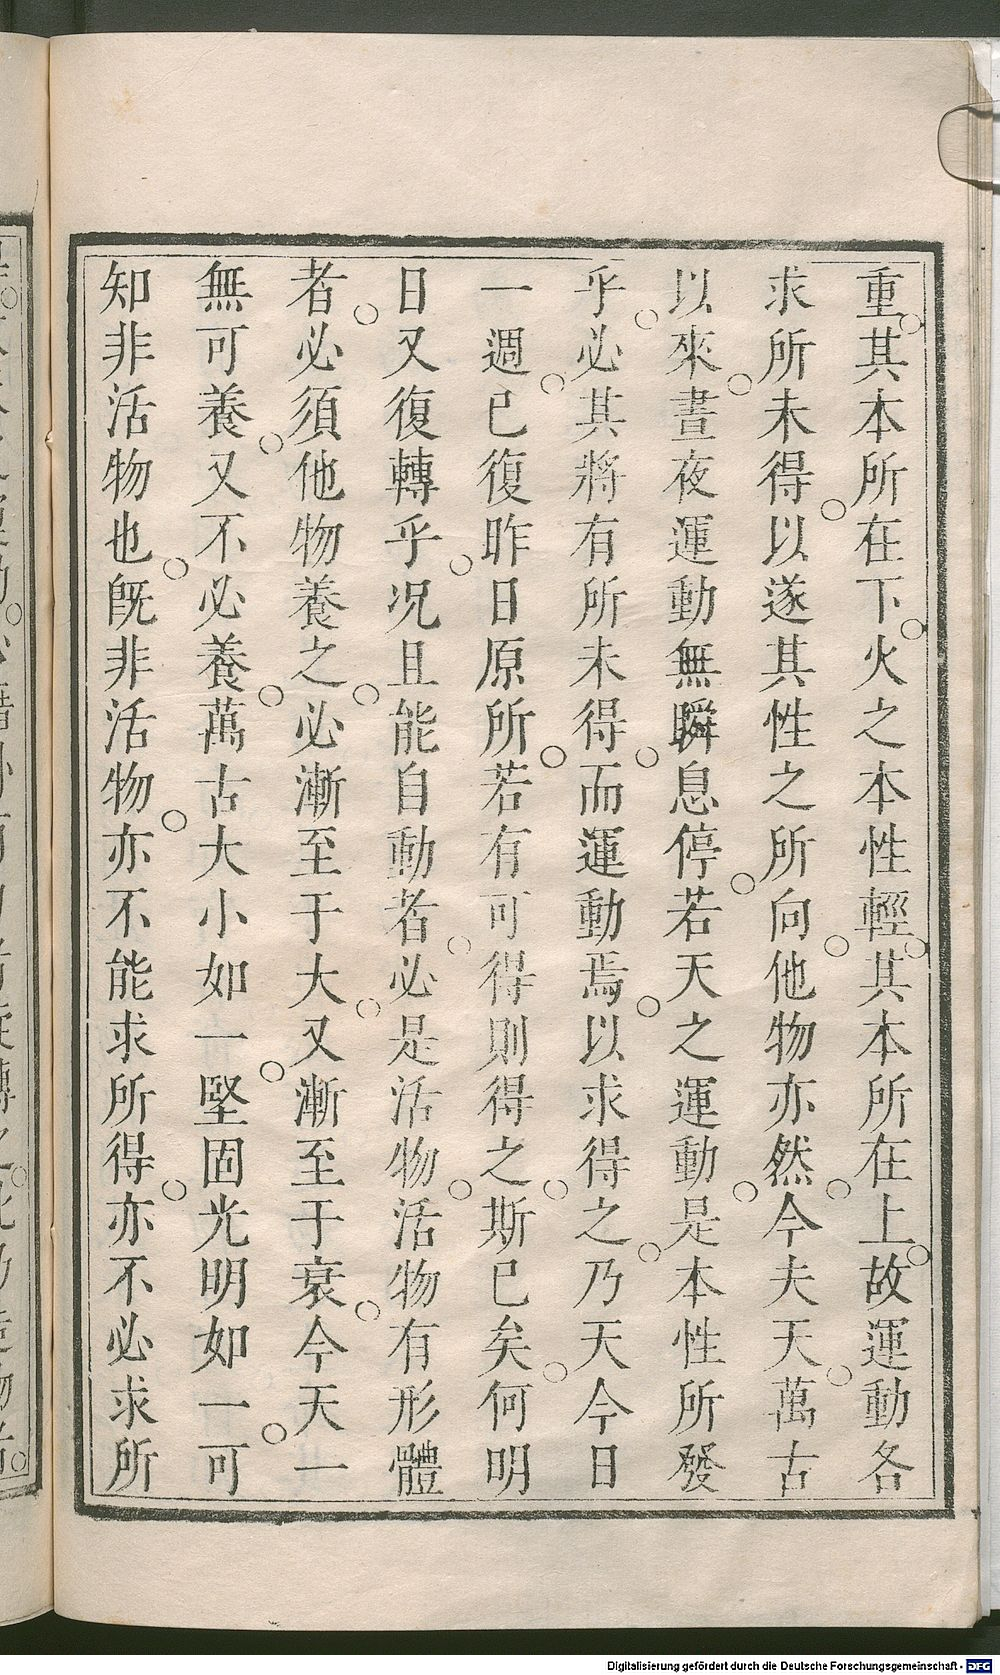 重其本所在下火之本性輕其本所在上故運動各
求所未得以遂其性之所向他物亦然今夫天萬古
以來晝夜運動無瞬息停若天之運動是本性所發
乎必其將有所未得而運動焉以求得之乃天今日
一週已復昨日原所若有可得則得之斯已矣何明
日又復轉乎况且能自動者必是活物活物有形體
者必須他物養之必漸至于大又漸至于衰今天一
無可養又不必養萬古大小如一堅固光明如一可
知非活物也旣非活物亦不能求所得亦不必求所
Digitalisierung gefördert durch die Deutsche Forschungsgemeinschaft - DFG